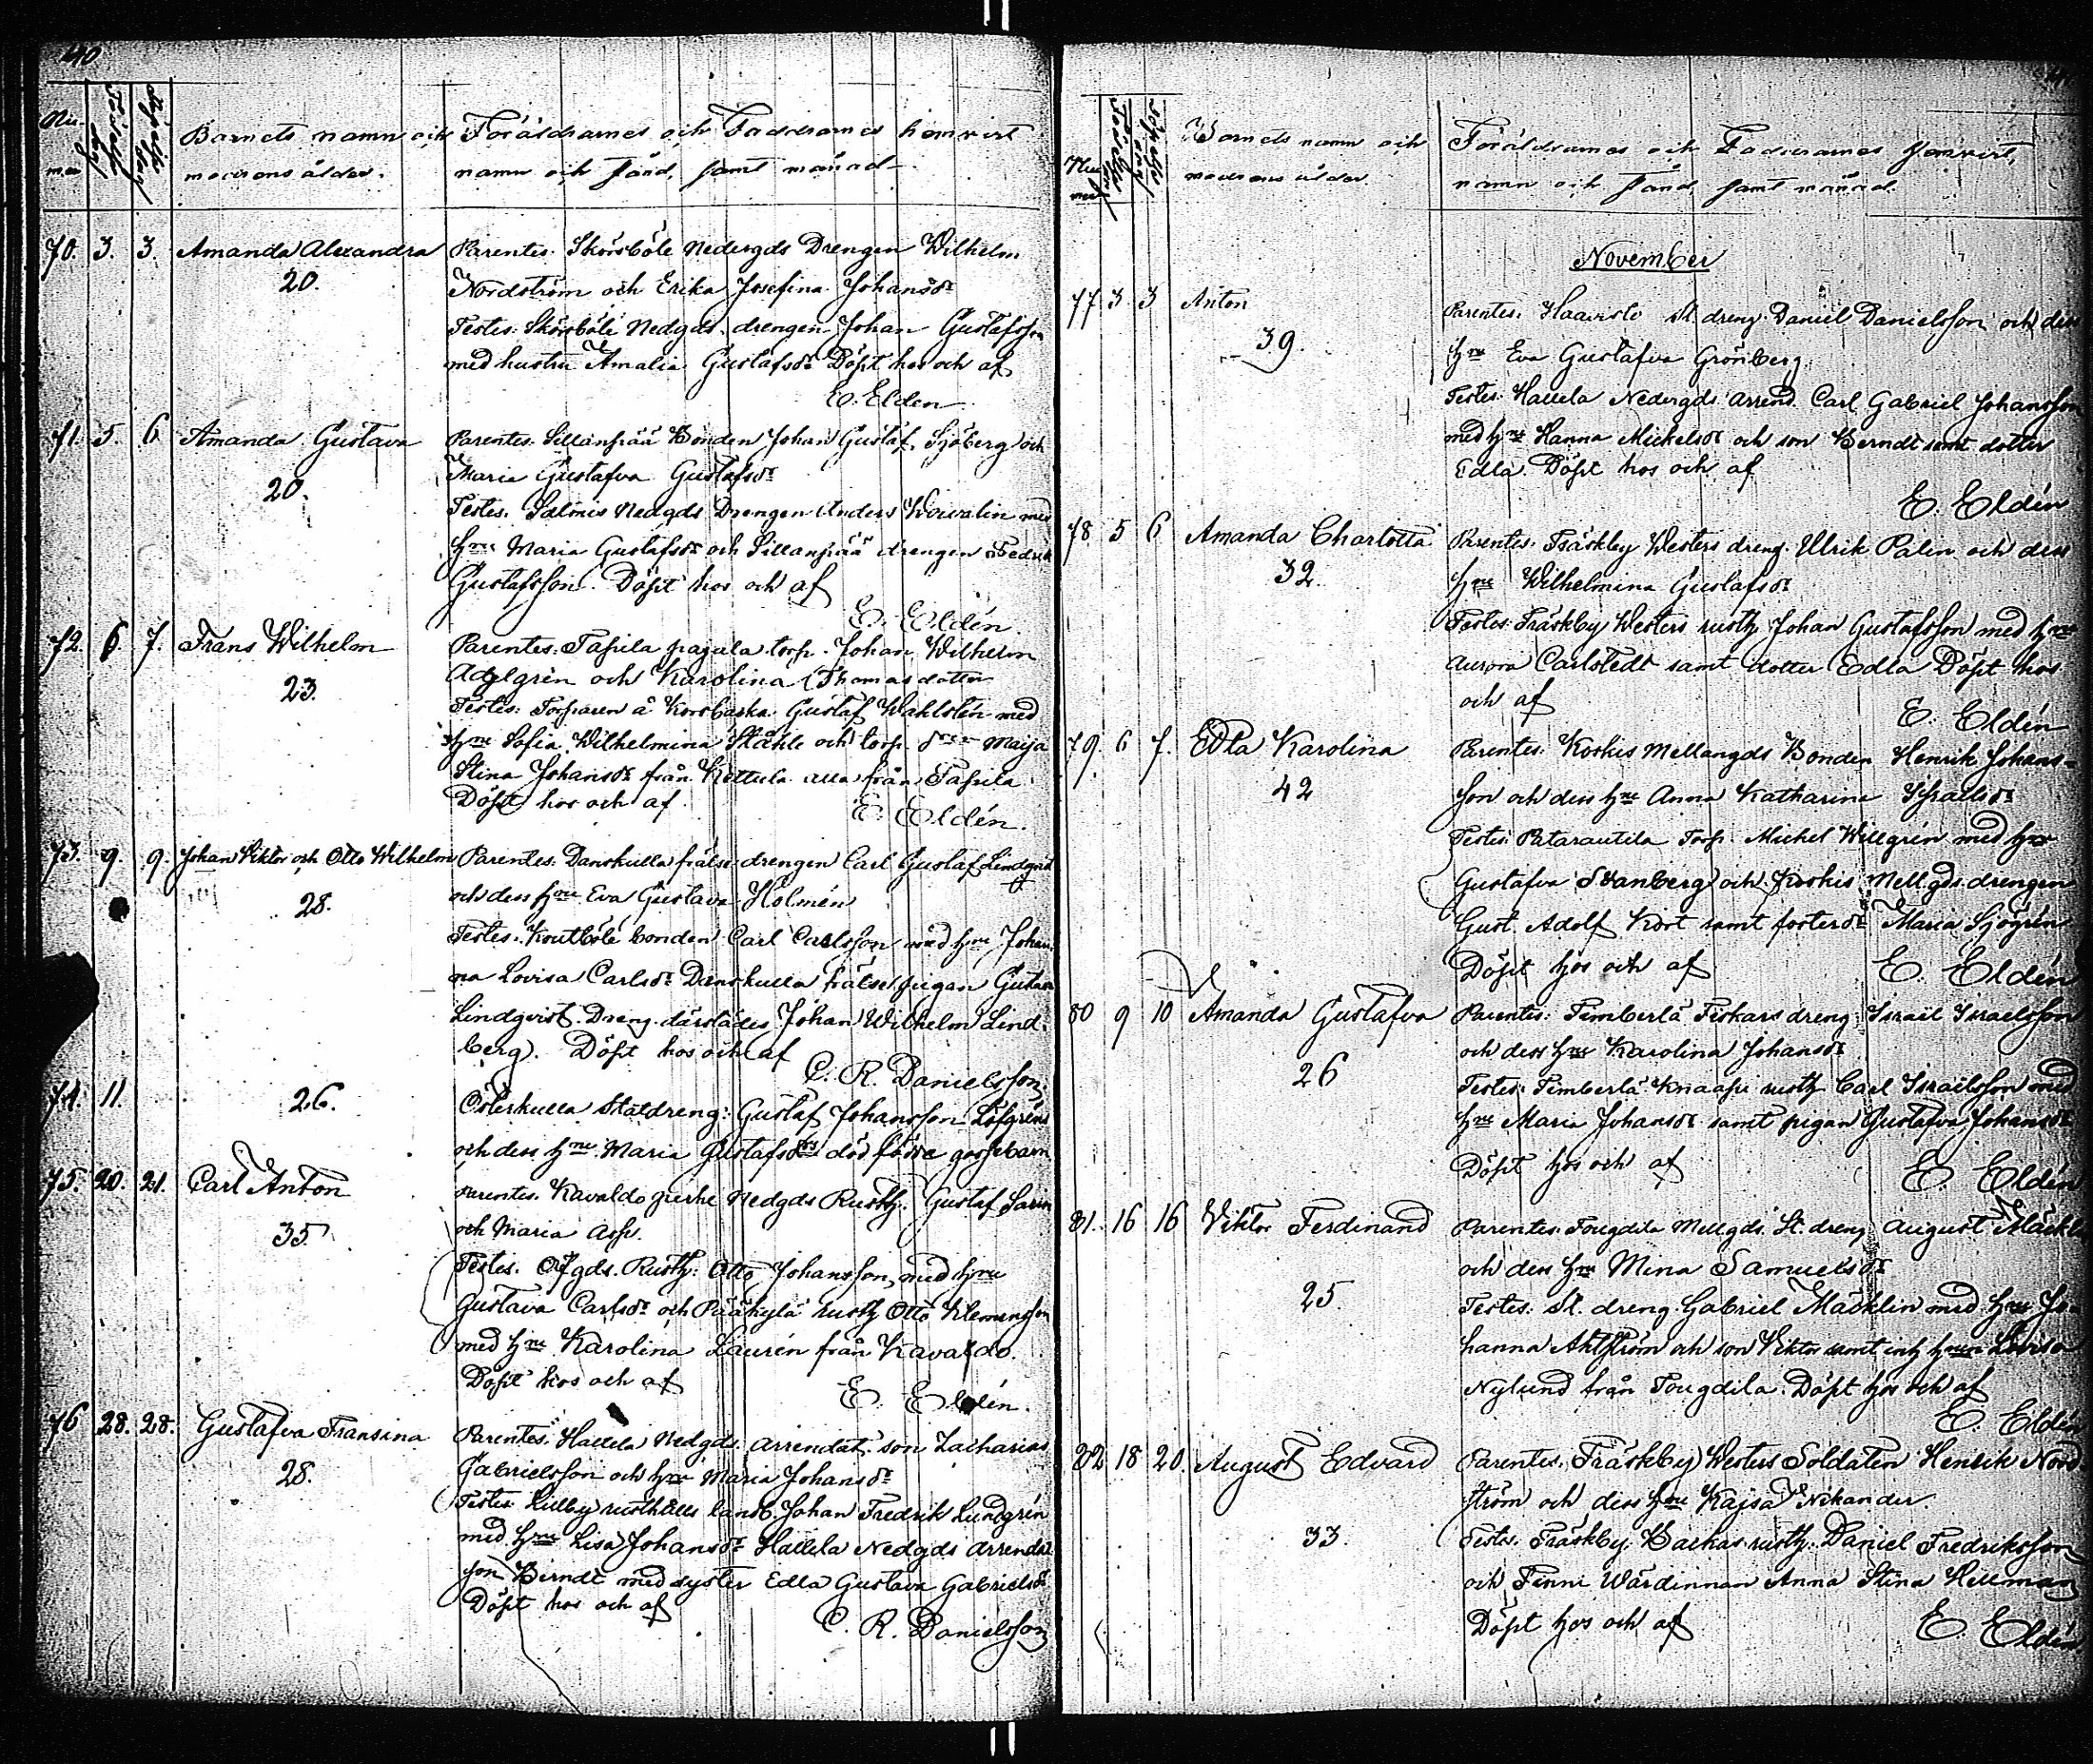 40
Nu-
mer
Födelse dag
Döpelse dag
Barnets namn och
modrens ålder.
Föräldrarnes och Faddrarnes hemvist
namn och stånd, samt månad
70. 3. 3. Amanda Alexandra
20.
Parentes: Skörsböle Nedergds Drengen Wilhelm
Nordström och Erika Josefina Johansdr
Testes: Skörsböle Nedgds drengen Johan Gustafsson
med hustru Amalia Gustafsdr Döpt hos och af
E. Elden
71. 5. 6 Amanda Gustava
20.
Parentes. Sillanpää Bonden Johan Gustaf Sjöberg och
Maria Gustafva Gustafsdr
Testes. Salmis Nedgds Drengen Anders Woivalin med
hru Maria Gustafsdr och Sillanpää drengen Fedrik
Gustafsson. Döpt hos och af
E. Eldén.
72. 6. 7. Frans Wilhelm
23.
Parentes: Tapila pajula torp. Johan Wilhelm
Adelgrén och Karolina Thomasdotter
Testes: Torparen å Korsbacka Gustaf Wahlstén med
hru Sofia Wilhelmina Ståhle och torp. Maija
Stina Johansdr från Kettula alla från Tapila
Döpt hos och af
E. Eldén.
73. 9. 9. Johan Viktor och Otto Wilhelm
28.
Parentes: Danskulla frälse drengen Carl Gustaf Lindqvist
och dess hru Eva Gustava Holmén
Testes. Koutböle bonden Carl Carlsson med hru Johan-
na Lovisa Carlsdr Danskulla frälse pigan Gustava
Lindqvist. Dreng. därstädes Johan Wilhelm Lind-
berg). Döpt hos och af
C. R. Danielsson.
74. 11. 26.
Österkulla Statdreng: Gustaf Johansson Löfgréns
och dess hru Maria Gustafsdrs död födde gossebarn
75. 20. 21. Carl Anton
35.
Parentes. Kavaldo Nedgds Rusth. Gustaf Sarin
och Maria Asp.
Testes. Ofgds. Rusth: Otto Johansson, med hru
Gustava Carlsdr och Pääkylä rusth Otto Klemensson
med hru Karolina Laurén från Kavaldo.
Döpt hos och af
E. Eldén.
76 28. 28. Gustafva Fransina
28.
Parentes. Hallela Nedgds. arrendat. son Zacharias
Gabrielsson och hru Maria Johansdr
Testes Lillby rusthålls landb. Johan Fredrik Lundgrén
med hru Lisa Johansdr Hallela Nedgds arrendat
son Berndt med syster Edla Gustava Gabrielsdr
Döpt hos och af
C. R. Danielsson
Nu-
mer
Födelse dag
Döpelse dag
Barnets namn och
modrens ålder.
Föräldrarnes och Faddrarnes hemvist,
namn och stånd samt månad.
November
77 3 3 Anton
39.
Parentes: Haavisto St. dreng Daniel Danielsson och dess
hru Eva Gustafva Grönberg
Testes: Hallela Nedergds Arrend. Carl Gabriel Johansson
med hru Hanna Mickelsdr och son Berndt samt dotter
Edla. Döpt hos och af
E. Eldén
78. 5 6 Amanda Charlotta
32.
Parentes: Träskby Westers dreng. Ulrik Palin och dess
hru Wilhelmina Gustafsdr
Testes: Träskby Westers rusth. Johan Gustafsson med hru
Aurora Carlstedt samt dotter Edla Döpt hos
och af
E. Eldén
79. 6 7. Edla Karolina
42
Parentes: Koskis Mellangds Bonden Henrik Johans-
son och dess hru Anna Katharina Israelsdr
Testes: Patarautila Torp. Mickel Willgrén med hru
Gustafva Svanberg och Koskis Mellgds drengen
Gust. Adolf Kort samt fosterdr Maria Sjögrén
Döpt hos och af
E. Eldén
80 9 10 Amanda Gustafva
26
Parentes: Pemberlä Fiskars dreng. Israil Israelsson
och dess hru Karolina Johansdr
Testes: Pemberlä Knaapi rusth Carl Israilsson med
hru Maria Johansdr samt pigan Gustafva Johansdr
Döpt hos och af
E. Eldén
81. 16 16 Viktor Ferdinand
25.
Parentes. Tougdila Mellgds. St. dreng August Mäcklin
och dess hru Mina Samuelsdr
Testes: St. dreng. Gabriel Mäcklin med hru Jo-
hanna Ahlström och son Viktor samt inh hrun Lovisa
Nylund från Tougdila. Döpt hos och af
E. Eldén
82 18 20. August Edvard
33.
Parentes. Träskby Westers Soldaten Henrik Nord-
ström och dess hru Kajsa Nikander.
Testes. Träskby Backas rusth. Daniel Fredriksson
och Finni Wärdinnan Anna Stina Hellman
Döpt hos och af
E. Eldén